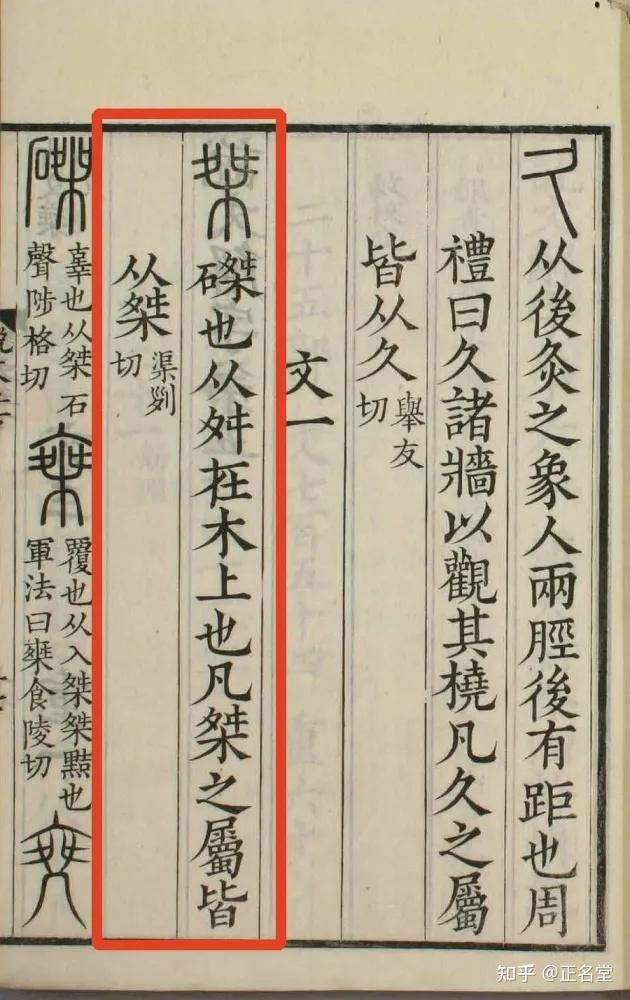 久从後灸之象人兩脛後有距也周
禮曰久諸牆以觀其橈凡久之屬
皆从久舉友切
文一
桀磔也从舛在木上也凡桀之屬皆
从桀渠列切
磔辜也从桀石聲陟格切椉覆也从入桀桀黠也軍法曰椉食陵切
知乎 @正名堂